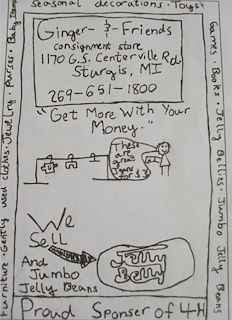 Seasonal decorations · Toys ·
Games · Books · Jelly Bellies · Jumbo Jelly Beans
Furniture · Gently used clothes · Jewelry · Purses · Baby Items
Ginger- & -Friends
consignment store
1170 G.S. Centerville Rd.
Sturgis, MI
269-651-1800
"Get More With Your
Money."
These
are
great
Jeans
for $3
We
Sell
Jelly
Belly
And
Jumbo
Jelly Beans
Proud Sponser of 4-H